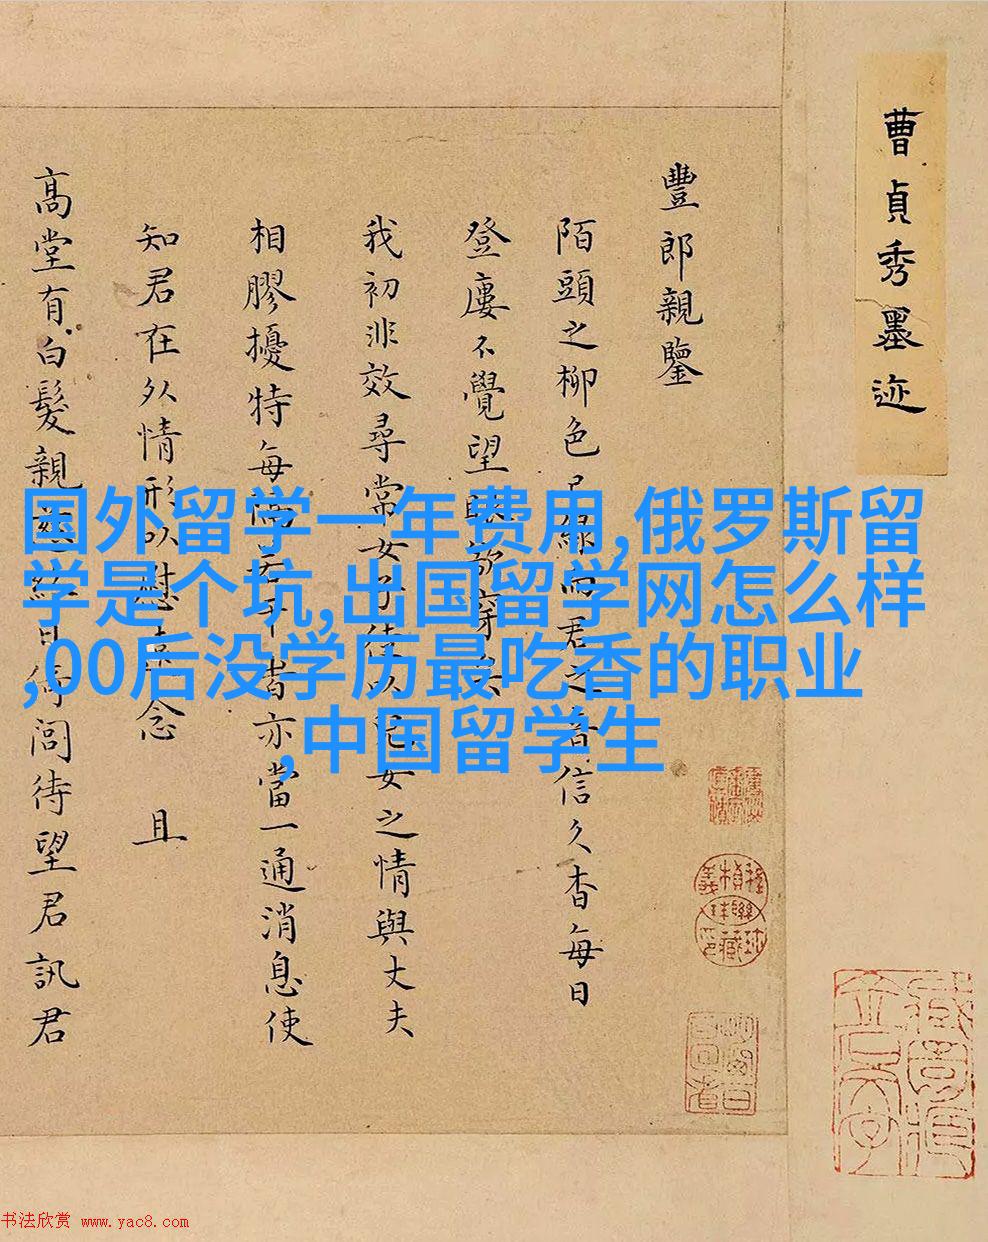 曹貞秀墨迹
豐郎親鑒
陌頭之柳色綠而君之音信久杳每日
登廔不覺望眼欲穿矣
我初非效尋常女子徒以兒女之情與丈夫
相膠擾特每者亦當一通消息使
知君在外情形以慰念 且
高堂有白髮親日倚閭待望君訊君
国外留学一年费用,俄罗斯留
学是个坑,出国留学网怎么样
,00后没学历最吃香的职业
,中国留学生
书法欣赏 www.yac8.com